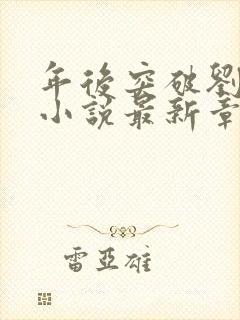 年後突破劉
小說最新章
雷亞雄